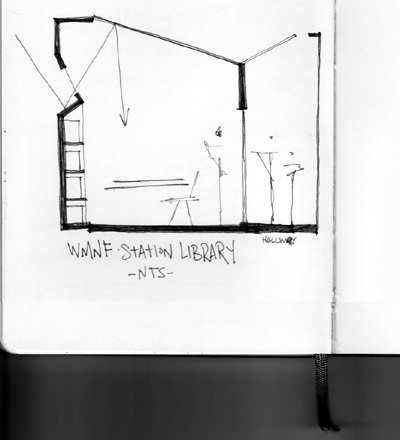 HALLWAY
WMNF · STATION LIBRARY
-NTS-